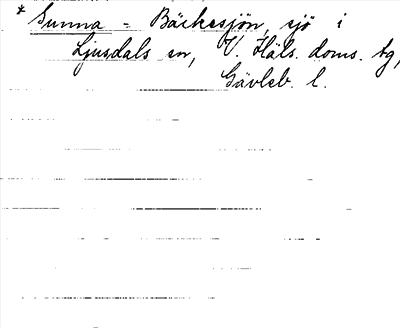 * Sunna = Bäckesjön, sjö i
Ljusdals sn, V. Häls. doms. tg,
Gävleb. l.